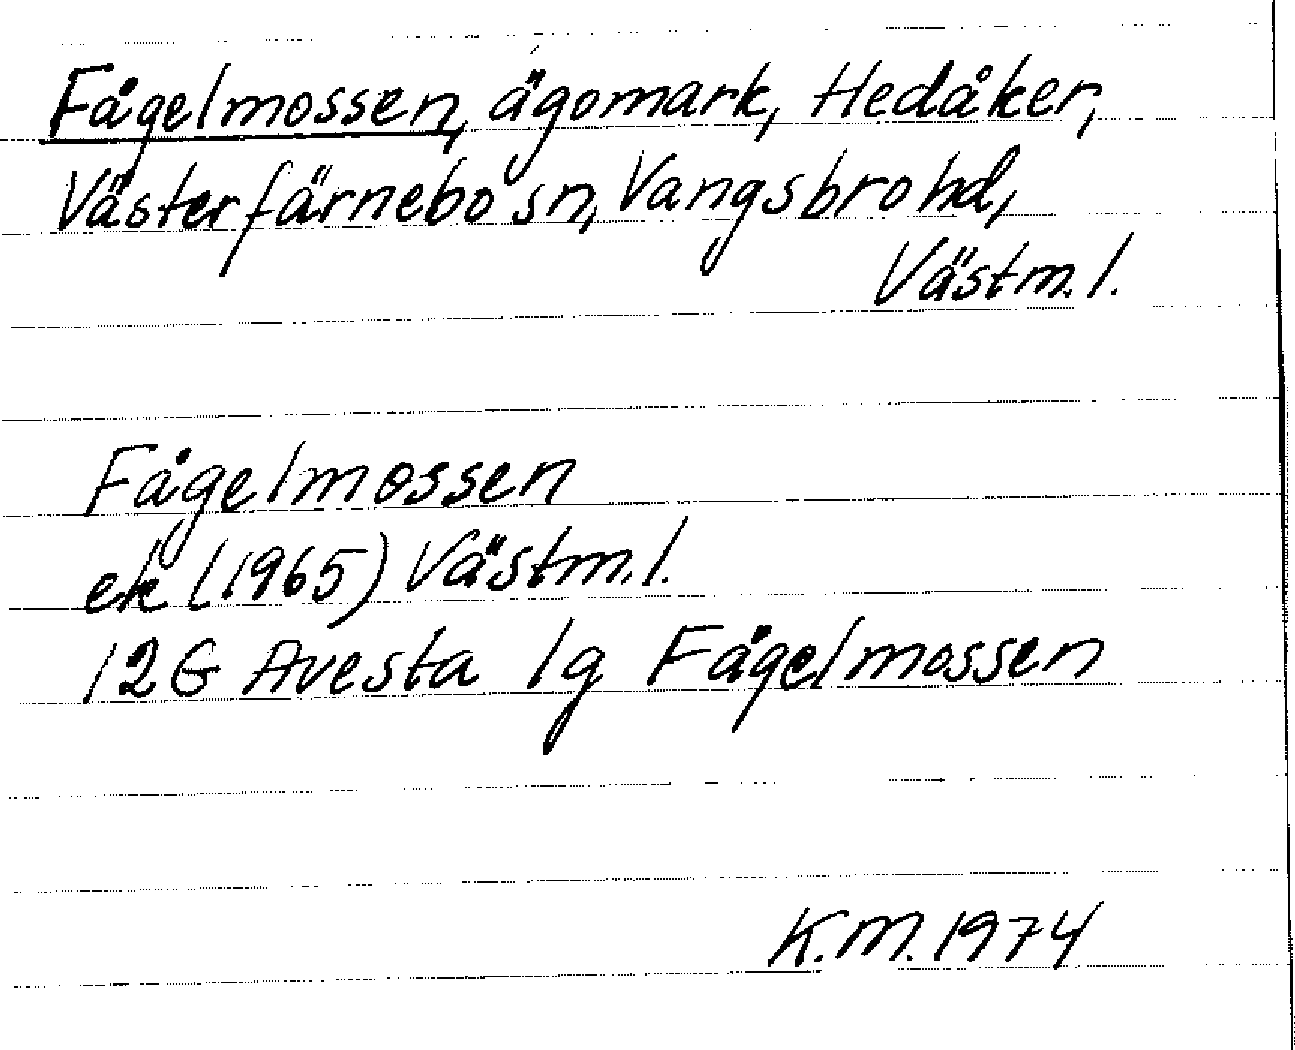 Fågelmossen, ägomark, Hedåker,
Västerfärnebo sn, Vangsbro hd,
Västm. l.
Fågelmossen
ek (1965) Västm. l.
12G Avesta 1g Fågelmossen
K.M. 1974